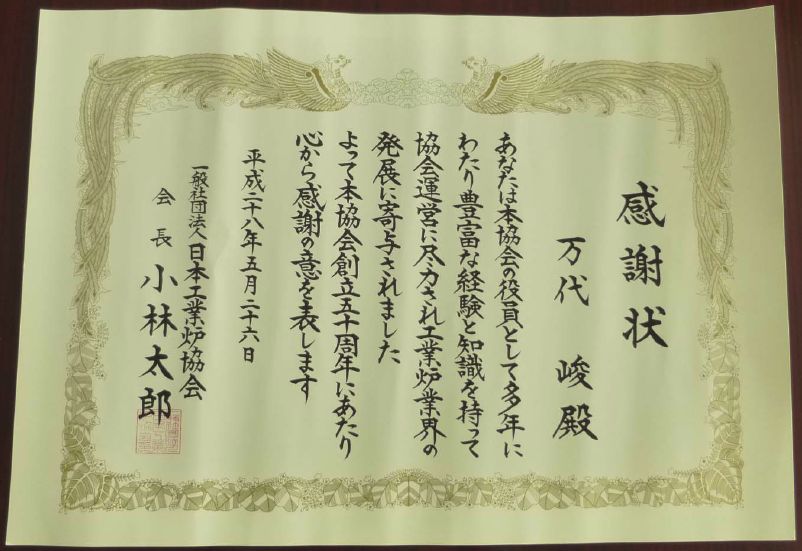 感謝状
万代 峻殿
あなたは本協会の役員として多年に
わたり豊富な経験と知識を持って
協会運営に尽力され工業炉業界の
発展に寄与されました
よって本協会創立五十周年にあたり
心から感謝の意を表します
平成二十八年五月二十六日
一般社団法人日本工業炉協会
会長 小林太郎